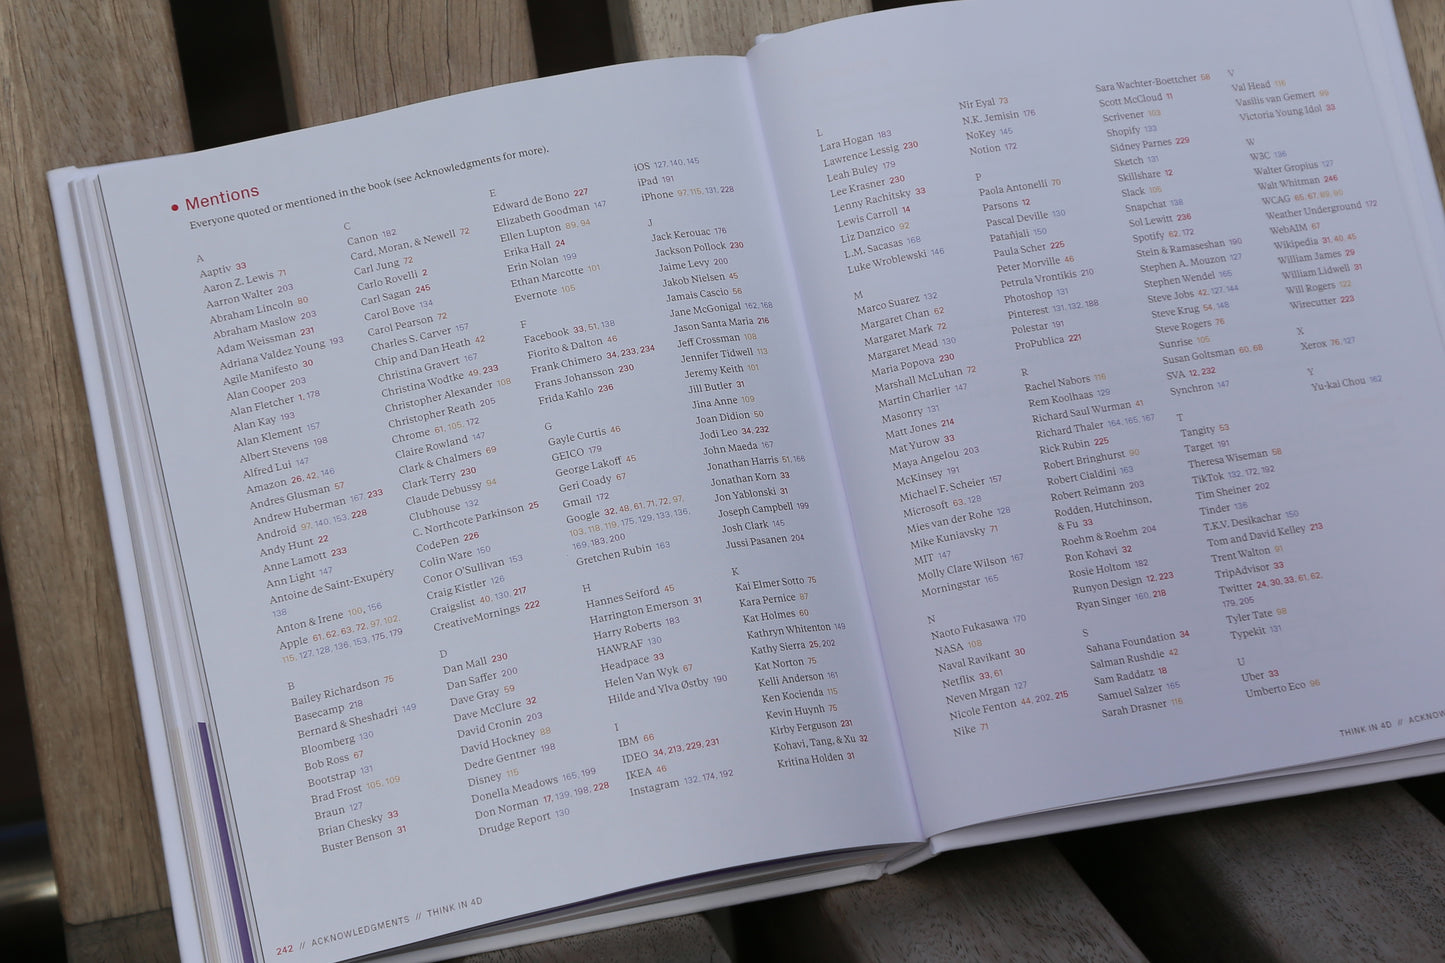 Mentions
Everyone quoted or mentioned in the book (see Acknowledgments for more).
A
Aaptiv 33
Aaron Z. Lewis 71
Aarron Walter 203
Abraham Lincoln 80
Abraham Maslow 203
Adam Weissman 231
Adriana Valdez Young 193
Agile Manifesto 30
Alan Cooper 203
Alan Fletcher 1, 178
Alan Kay 193
Alan Klement 157
Albert Stevens 198
Alfred Lui 147
Amazon 26, 42, 146
Andres Glusman 57
Andrew Huberman 167, 233
Android 97, 140, 153, 228
Andy Hunt 22
Anne Lamott 233
Ann Light 147
Antoine de Saint-Exupéry
138
Anton & Irene 100, 156
Apple 61, 62, 63, 72, 97, 102,
115, 127, 128, 136, 153, 175, 179
B
Bailey Richardson 75
Basecamp 218
Bernard & Sheshadri 149
Bloomberg 130
Bob Ross 67
Bootstrap 131
Brad Frost 105, 109
Braun 127
Brian Chesky 33
Buster Benson 31
C
Canon 182
Card, Moran, & Newell 72
Carl Jung 72
Carlo Rovelli 2
Carl Sagan 245
Carol Bove 134
Carol Pearson 72
Charles S. Carver 157
Chip and Dan Heath 42
Christina Gravert 167
Christina Wodtke 49, 233
Christopher Alexander 108
Christopher Reath 205
Chrome 61, 105, 172
Claire Rowland 147
Clark & Chalmers 69
Clark Terry 230
Claude Debussy 94
Clubhouse 132
C. Northcote Parkinson 25
CodePen 226
Colin Ware 150
Conor O'Sullivan 153
Craig Kistler 126
Craigslist 40, 130, 217
CreativeMornings 222
D
Dan Mall 230
Dan Saffer 200
Dave Gray 59
Dave McClure 32
David Cronin 203
David Hockney 88
Dedre Gentner 198
Disney 115
Donella Meadows 165, 199
Don Norman 17, 139, 198, 228
Drudge Report 130
E
Edward de Bono 227
Elizabeth Goodman 147
Ellen Lupton 89, 94
Erika Hall 24
Erin Nolan 199
Ethan Marcotte 101
Evernote 105
F
Facebook 33, 61, 138
Fiorito & Dalton 46
Frank Chimero 34, 233, 234
Frans Johansson 230
Frida Kahlo 236
G
Gayle Curtis 46
GEICO 179
George Lakoff 45
Geri Coady 67
Gmail 172
Google 32, 48, 61, 71, 72, 97,
103, 118, 119, 175, 129, 133, 136,
169, 183, 200
Gretchen Rubin 163
H
Hannes Seiford 45
Harrington Emerson 31
Harry Roberts 183
HAWRAF 130
Headpace 33
Helen Van Wyk 67
Hilde and Ylva Østby 190
I
IBM 66
IDEO 34, 213, 229, 231
IKEA 46
Instagram 132, 174, 192
iOS 127, 140, 145
iPad 191
iPhone 97, 115, 131, 228
J
Jack Kerouac 176
Jackson Pollock 230
Jaime Levy 200
Jakob Nielsen 45
Jamais Cascio 56
Jane McGonigal 162, 168
Jason Santa Maria 216
Jeff Crossman 108
Jennifer Tidwell 113
Jeremy Keith 101
Jill Butler 31
Jina Anne 109
Joan Didion 50
Jodi Leo 34, 232
John Maeda 167
Jonathan Harris 51, 166
Jonathan Korn 33
Jon Yablonski 31
Joseph Campbell 199
Josh Clark 145
Jussi Pasanen 204
K
Kai Elmer Sotto 75
Kara Pernice 87
Kat Holmes 60
Kathryn Whitenton 149
Kathy Sierra 25, 202
Kat Norton 75
Kelli Anderson 161
Ken Kocienda 115
Kevin Huynh 75
Kirby Ferguson 231
Kohavi, Tang, & Xu 32
Kritina Holden 31
242 // ACKNOWLEDGMENTS // THINK IN 4D
L
Lara Hogan 183
Lawrence Lessig 230
Leah Buley 179
Lee Krasner 230
Lenny Rachitsky 33
Lewis Carroll 14
Liz Danzico 92
L.M. Sacasas 168
Luke Wroblewski 146
M
Marco Suarez 132
Margaret Chan 62
Margaret Mark 72
Margaret Mead 130
Maria Popova 230
Marshall McLuhan 72
Martin Charlier 147
Masonry 131
Matt Jones 214
Mat Yurow 33
Maya Angelou 203
McKinsey 191
Michael F. Scheier 157
Microsoft 63, 128
Mies van der Rohe 128
Mike Kuniavsky 71
MIT 147
Molly Clare Wilson 167
Morningstar 165
N
Naoto Fukasawa 170
NASA 108
Naval Ravikant 30
Netflix 33, 61
Neven Mrgan 127
Nicole Fenton 44, 202, 215
Nike 71
Nir Eyal 73
N.K. Jemisin 176
NoKey 145
Notion 172
P
Paola Antonelli 70
Parsons 12
Pascal Deville 130
Patañjali 150
Paula Scher 225
Peter Morville 46
Petrula Vrontikis 210
Photoshop 131
Pinterest 131, 132, 188
Polestar 191
ProPublica 221
R
Rachel Nabors 116
Rem Koolhaas 129
Richard Saul Wurman 41
Richard Thaler 164, 165, 167
Rick Rubin 225
Robert Bringhurst 90
Robert Cialdini 163
Robert Reimann 203
Rodden, Hutchinson,
& Fu 33
Roehm & Roehm 204
Ron Kohavi 32
Rosie Holtom 182
Runyon Design 12, 223
Ryan Singer 160, 218
S
Sahana Foundation 34
Salman Rushdie 42
Sam Raddatz 18
Samuel Salzer 165
Sarah Drasner 116
Sara Wachter-Boettcher 58
Scott McCloud 11
Scrivener 103
Shopify 133
Sidney Parnes 229
Sketch 131
Skillshare 12
Slack 106
Snapchat 138
Sol Lewitt 236
Spotify 62, 172
Stein & Ramaseshan 190
Stephen A. Mouzon 127
Stephen Wendel 165
Steve Jobs 42, 127, 144
Steve Krug 54, 148
Steve Rogers 76
Sunrise 105
Susan Goltsman 60, 68
SVA 12, 232
Synchron 147
T
Tangity 53
Target 191
Theresa Wiseman 58
TikTok 132, 172, 192
Tim Sheiner 202
Tinder 136
T.K.V. Desikachar 150
Tom and David Kelley 213
Trent Walton 91
TripAdvisor 33
Twitter 24, 30, 33, 61, 62,
179, 205
Tyler Tate 98
Typekit 131
U
Uber 33
Umberto Eco 96
V
Val Head 116
Vasilis van Gemert 99
Victoria Young Idol 33
W
W3C 136
Walter Gropius 127
Walt Whitman 246
WCAG 65, 67, 69, 90
Weather Underground 172
WebAIM 67
Wikipedia 31, 40, 45
William James 29
William Lidwell 31
Will Rogers 122
Wirecutter 223
X
Xerox 76, 127
Y
Yu-kai Chou 162
THINK IN 4D // ACKNOW